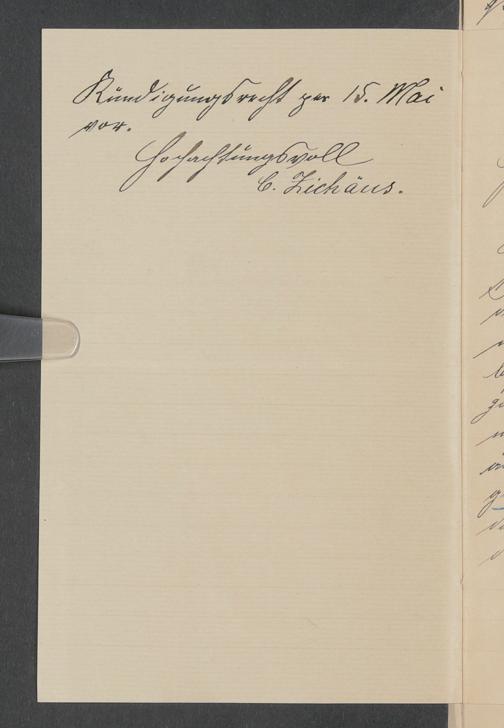 Kündigungsrecht per 15. Mai
vor.
Hochachtungsvoll
C. Ziehäus.